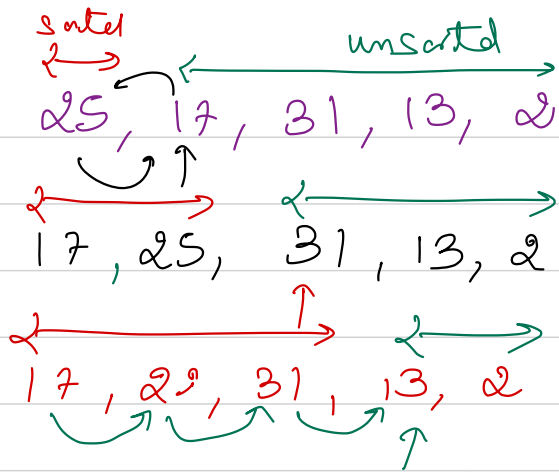 sorted unsorted
25, 17, 31, 13, 2
17, 25, 31, 13, 2
17, 25, 31, 13, 2